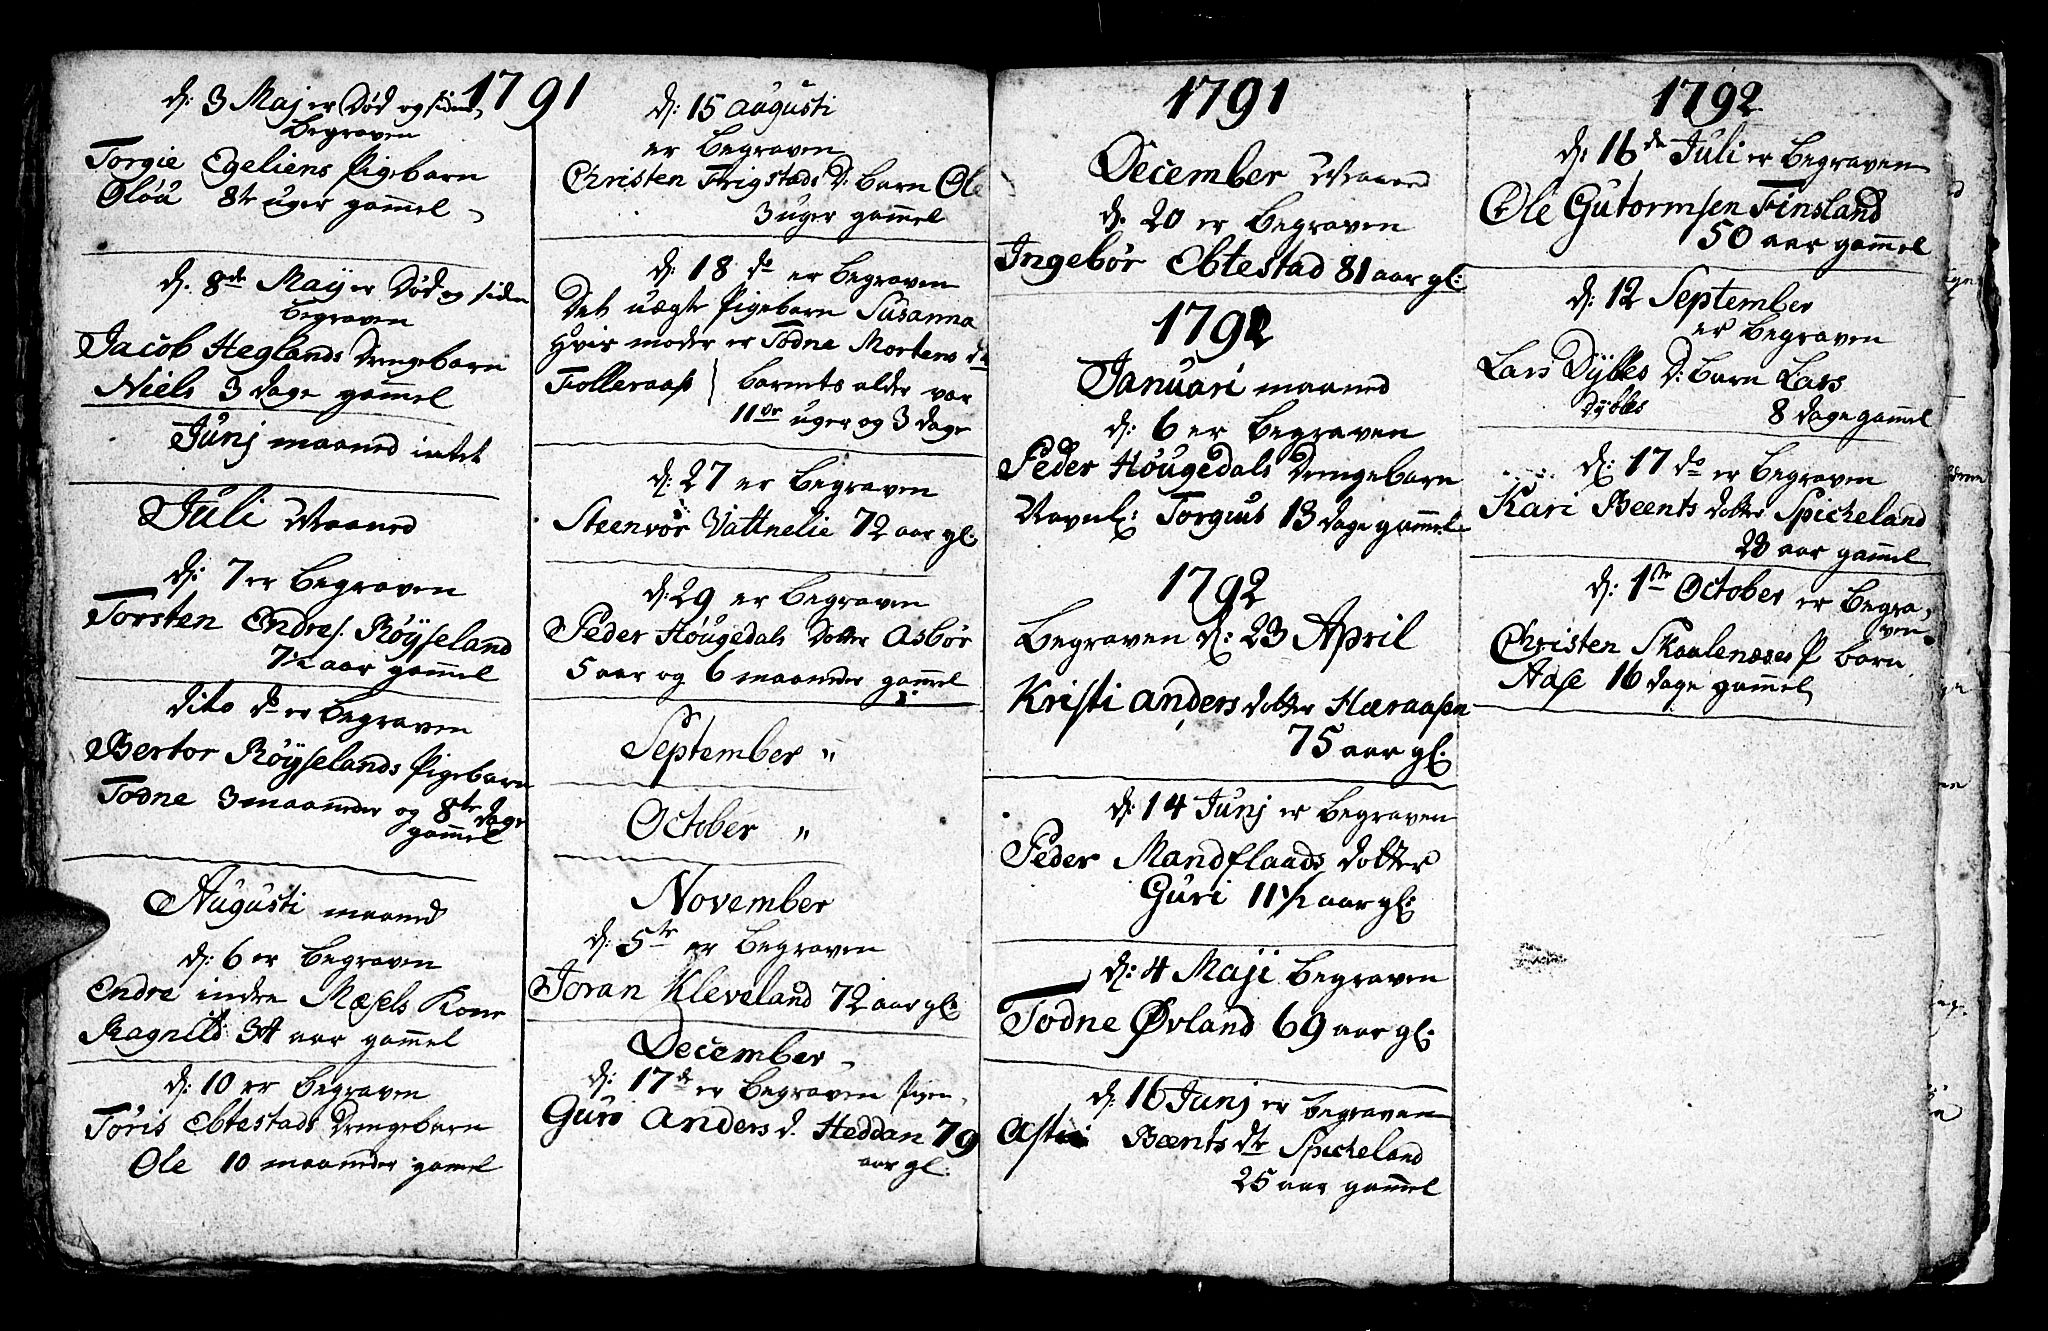 1791
d: 3 Maj er Død og siden
begraven
Torgie Egeliens Pigebarn
Oløu 8te uger gammel
d. 8de May er Død og siden
begraven
Jacob Heglands Drengebarn
Niels 3 dage gammel
Junj maaned intet
Juli Maaned
d: 7 er begraven
Torsten Endres. Røysseland
7½ aar gammel
dito do er begraven
Bertor Røysselands Pigebarn
Todne 3 maaneder og 8te dage
gammel
Augusti maaned
d: 6 er begraven
Endre indre Mæsels Kone
Ragnild 34 aar gammel
d: 10 er begraven
Toris Ebtestads Drengebarn
Ole 10 maaneder gamel
d: 15 Augusti
er begraven
Christen Frigstads D: barn Ole
3 uger gammel
d: 18 do er begraven
Det uægte Pigebarn Susanna
hvis moder er Todne Mortens d
Folleraas barnets alder var
11ve uger og 3 dage
d: 27 er begraven
Steenvor Vattnelie 72 aar gl:
d: 29 er begraven
Peder Høugedals dotter Asbør
5 aar og 6 maaneder gammel
September "
October "
November
d: 5te er begraven
Joran Kleveland 72 aar gl:
December
d: 17de er begraven Pigen
Guro Anders d. Heddan 79
aar gl:
1791
December Maaned
d. 20 er begraven
Ingebør Ebtestad 81 aar gl:
1792
Januari maaned
d: 6 er begraven
Peder Høugedals Drengebarn
Navnl: Torgius 13 dage gammel
1792
Begraven d: 23 April
Kristi Anders dotter Haraasen
75 aar gl:
d: 14 Junj er begraven
Peder Mandflaads dotter
Guri 11½ aar gl:
d: 4 Maji begraven
Todne Øvland 69 aar gl:
d: 16 Junj er begraven
Beents dtr Spicheland
25 aar gammel
1792
d: 16de Juli er begraven
Ole Gutormsen Finsland
50 aar gammel
d: 12 September
er begraven
Lars Dybles D: barn Lars
Dybles 8 dage gammel
d: 17 do er begraven
Kari Beents dotter Spicheland
23 aar gammel
d: 1ste October er begra,
ven
Christen Skaalenæses P barn
Aase 16 dage gammel